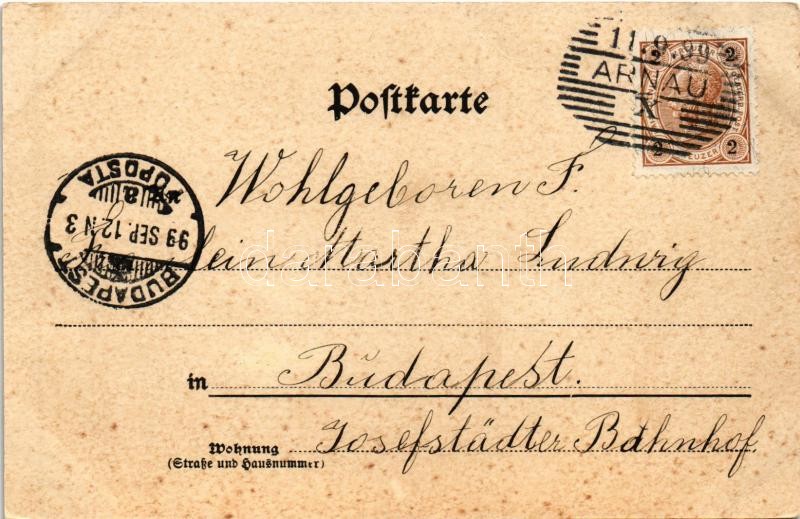 11.9.99
ARNAU
X
2 2
2 KREUZER 2
Postkarte
BUDAPEST
99 SEP. 12 N 3
a
FŐPOSTA
Wohlgeboren F.
Fräulein Martha Ludwig
darabanth
in Budapest.
Wohnung Josefstädter Bahnhof
(Straße und Hausnummer)